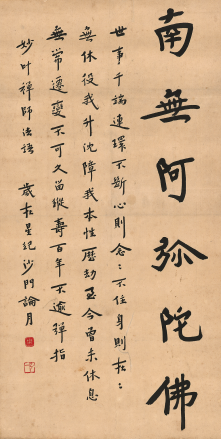 南無阿彌陀佛
世事千端連環不斷心則念〻不住身則在〻
無休役我升沈障我本性歷劫至今曾未休息
無常遷變不可久留縱壽百年不逾彈指
妙叶禪師法語 歲在星紀沙門論月